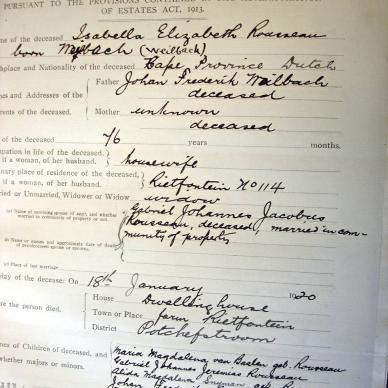 PURSUANT TO THE PROVISIONS CONTAINED IN THE ADMINISTRATION
OF ESTATES ACT, 1913.
me of the deceased Isabella Elizabeth Rousseau
born (Weilbach)
hplace and Nationality of the deceased Cape Province Dutch
Father Johan Frederik Weilbach
mes and Addresses of the deceased
rents of the deceased. Mother unknown
deceased
of the deceased 76 years months.
upation in life of the deceased,
if a woman, of her husband. housewife
nary place of residence of the deceased,
if a woman, of her husband. Rietfontein No 114
ried or Unmarried, Widower or Widow widow
(a) Name of surviving spouse (if any), and whether
married in community of property or not. Gabriel Johannes Jacobus
Rousseau, deceased, married in com-
munity of property
(b) Name or names and approximate date of death
of predeceased spouse or spouses.
(c) Place of last marriage
day of the decease: On 18th January 1920
ere the person died.
House Dwelling house
Town or Place farm Rietfontein
District Potchefstroom
mes of Children of deceased, and
whether majors or minors.
Maria Magdalena van gob. Rousseau
Gabriel Johannes Jeremias Rousseau
Alida Magdalena Snyman geb.
Johan